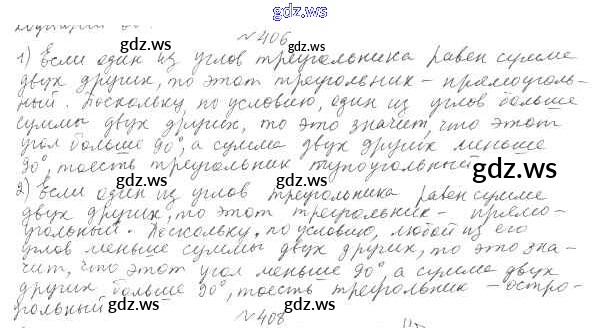 gdz.ws
№ 406 gdz.ws
1) Если один из углов треугольника равен сумме
двух других, то этот треугольник – прямоуголь-
ный. Поскольку, по условию, один из углов больше
суммы двух других, то это значит, что этот
угол больше 90°, а сумма двух других меньше
90°, тоесть треугольник тупоугольный.
gdz.ws
gdz.ws
2) Если один из углов треугольника равен сумме
двух других, то этот треугольник – прямо-
угольный. Поскольку, по условию, любой из его
углов меньше суммы двух других, то это зна-
чит, что этот угол меньше 90°, а сумма двух
других больше 90°, тоесть треугольник – остро-
угольный
gdz.ws
gdz.ws
№ 408